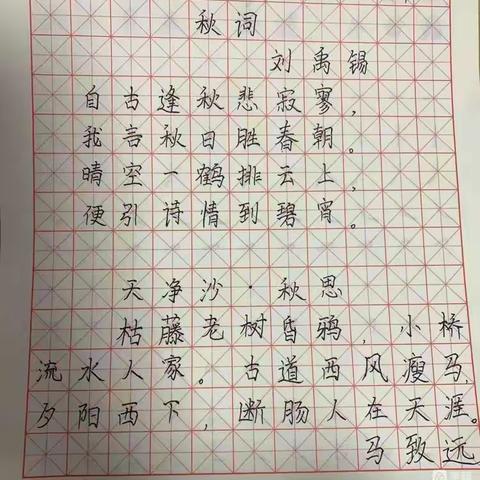 秋词
刘禹锡
自古逢秋悲寂寥，
我言秋日胜春朝。
晴空一鹤排云上，
便引诗情到碧宵。
天净沙·秋思
枯藤老树昏鸦，小桥
流水人家。古道西风瘦马，
夕阳西下，断肠人在天涯。
马致远